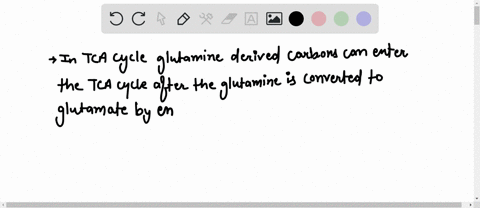 → In TCA cycle glutamine derived carbons can enter
the TCA cycle after the glutamine is converted to
glutamate by en